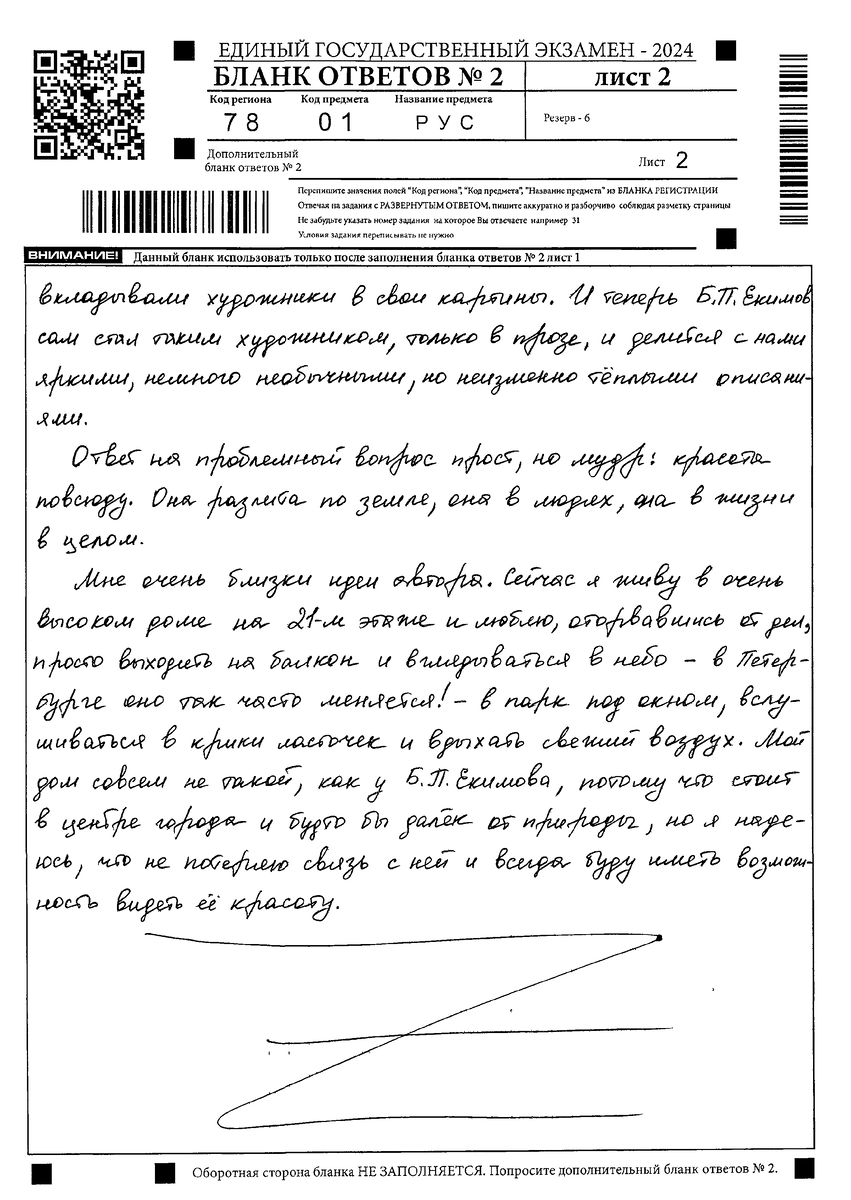 ЕДИНЫЙ ГОСУДАРСТВЕННЫЙ ЭКЗАМЕН - 2024
БЛАНК ОТВЕТОВ № 2 лист 2
Код региона Код предмета Название предмета
78 01 РУС Резерв - 6
Дополнительный
бланк ответов № 2
Лист 2
Перепишите значения полей "Код региона", "Код предмета", "Название предмета" из БЛАНКА РЕГИСТРАЦИИ
Отвечая на задания с РАЗВЕРНУТЫМ ОТВЕТОМ, пишите аккуратно и разборчиво соблюдая разметку страницы
Не забудьте указать номер задания на которое Вы отвечаете например 31
Условия задания переписывать не нужно
ВНИМАНИЕ! Данный бланк использовать только после заполнения бланка ответов № 2 лист 1
вкладывали художники в свои картины. И теперь Б.П. Екимов
сам стал таким художником, только в прозе, и делится с нами
яркими, немного необычными, но неизменно тёплыми описани-
ями.
Ответ на проблемный вопрос прост, но мудр: красота
повсюду. Она разлита по земле, она в людях, она в жизни
в целом.
Мне очень близки идеи автора. Сейчас я живу в очень
высоком доме на 21-м этаже и люблю, оторвавшись от дел,
просто выходить на балкон и вглядываться в небо – в Петер-
бурге оно так часто меняется! – в парк под окном, вслу-
шиваться в крики ласточек и вдыхать свежий воздух. Мой
дом совсем не такой, как у Б.П. Екимова, потому что стоит
в центре города и будто бы далёк от природы, но я наде-
юсь, что не потеряю связь с ней и всегда буду иметь возмож-
ность видеть её красоту.
Оборотная сторона бланка НЕ ЗАПОЛНЯЕТСЯ. Попросите дополнительный бланк ответов № 2.